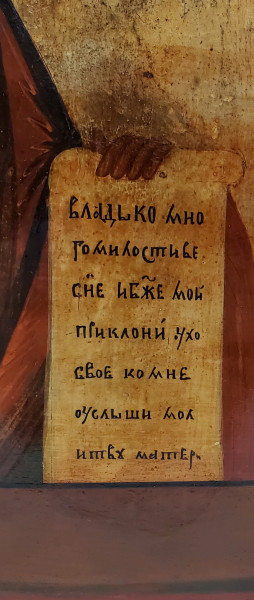 владыко мно
гомилостиве
сн҃е ибж҃е мой
приклони́ ухо
свое комне
оуслыши мол
итву матер.